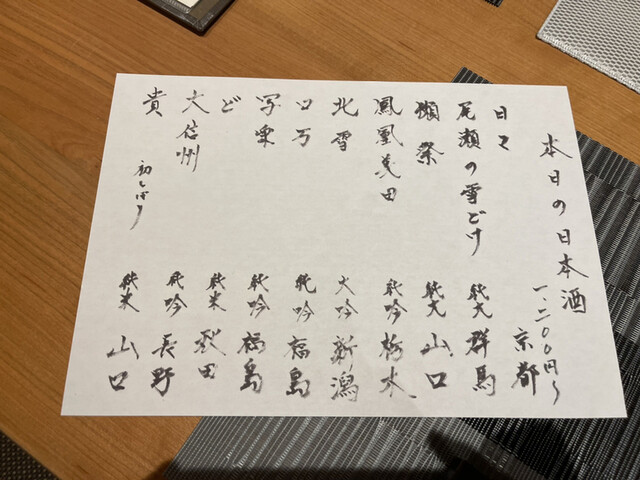 本日の日本酒
一、二〇〇円〜
日々 京都
尾瀬の雪どけ 純大 群馬
獺祭 純大 山口
鳳凰美田 純吟 栃木
北雪 大吟 新潟
ロ万 純吟 福島
写楽 純吟 福島
ど 純米 秋田
大信州 純吟 長野
貴 初しぼり 純米 山口